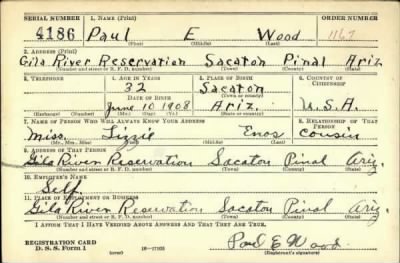 SERIAL NUMBER 1. NAME (Print) ORDER NUMBER
4186 Paul E Wood 1167
(First) (Middle) (Last)
2. ADDRESS (Print)
Gila River Reservation Sacaton Pinal Ariz.
(Number and street or R. F. D. number) (Town) (County) (State)
3. TELEPHONE 4. AGE IN YEARS 5. PLACE OF BIRTH 6. COUNTRY OF CITIZENSHIP
32 Sacaton
DATE OF BIRTH (Town or county)
June 10 1908 Ariz. U.S.A.
(Exchange) (Number) (Mo.) (Day) (Yr.) (State or country)
7. NAME OF PERSON WHO WILL ALWAYS KNOW YOUR ADDRESS 8. RELATIONSHIP OF THAT PERSON
Miss. Lizzie Enos cousin
(Mr., Mrs., Miss) (First) (Middle) (Last)
9. ADDRESS OF THAT PERSON
Gila River Reservation Sacaton Pinal Ariz.
(Number and street or R. F. D. number) (Town) (County) (State)
10. EMPLOYER'S NAME
Self.
11. PLACE OF EMPLOYMENT OR BUSINESS
Gila River Reservation Sacaton Pinal Ariz.
(Number and street or R. F. D. number) (Town) (County) (State)
I AFFIRM THAT I HAVE VERIFIED ABOVE ANSWERS AND THAT THEY ARE TRUE.
REGISTRATION CARD
D. S. S. Form 1 (over) Paul E Wood
(Registrant's signature)